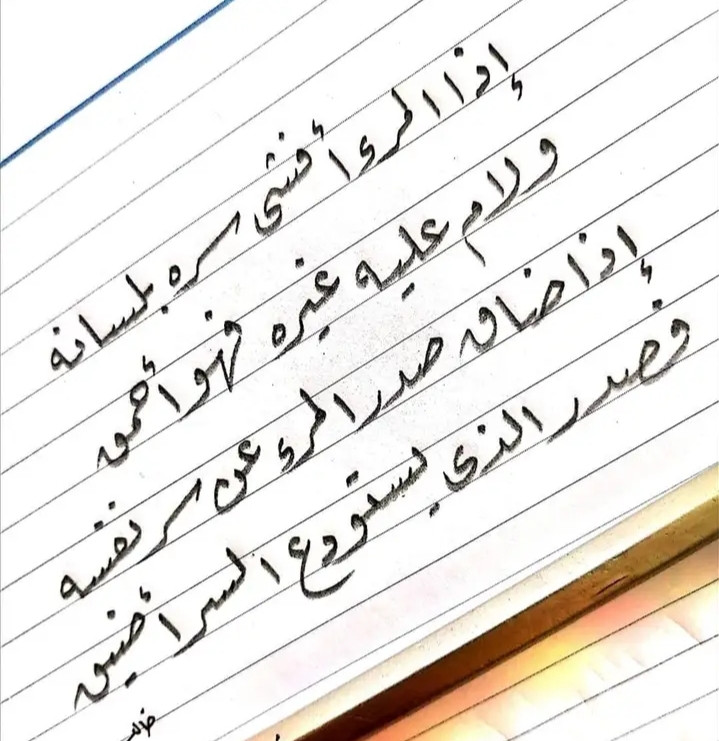 إذا المرء أفشى سره بلسانه
ولام عليه غيره فهو أحمق
إذا ضاق صدر المرء عن سر نفسه
فصدر الذي يستودع السر أضيق